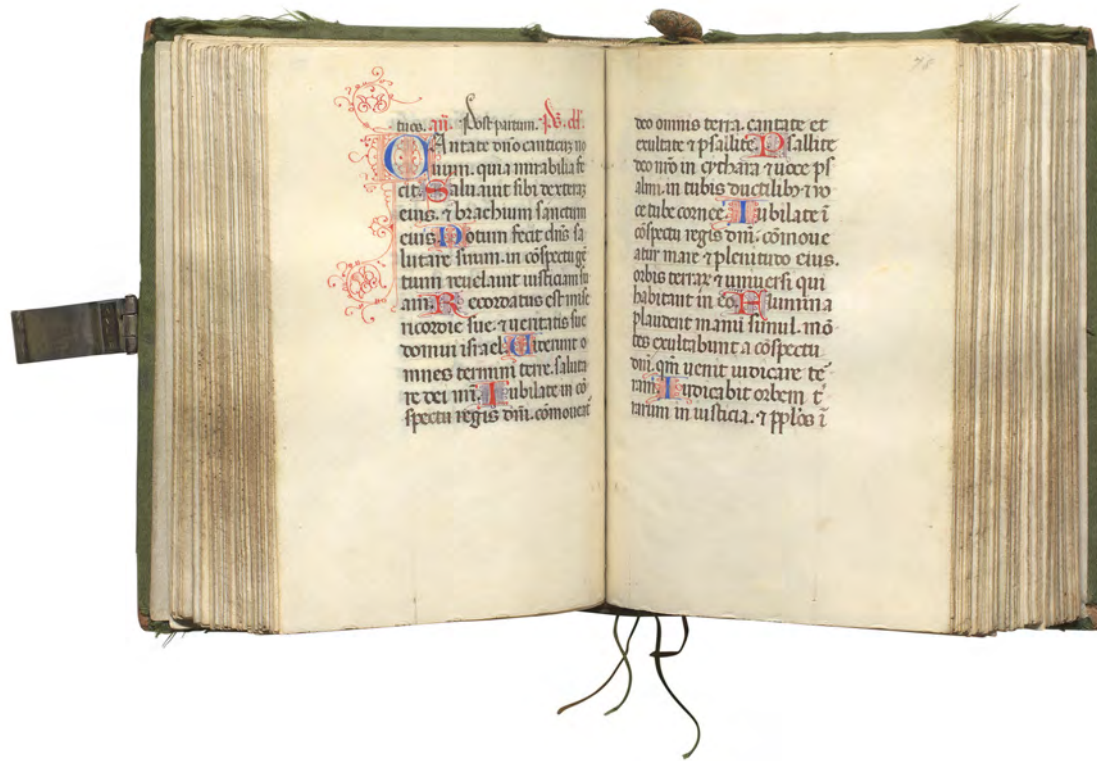 tuos. añ. Post partum. ps. dd.
CAntate dño canticuz no
uum. quia mirabilia fe
cit. Saluauit sibi dexteraz
eius. ⁊ brachium sanctum
eius. Notum fecit dñs sa
lutare suum. in cõspectu gẽ
tium reuelauit iusticiam su
am. Recordatus est mise
ricordie sue. ⁊ ueritatis sue
domui israel. Uiderunt o
mnes termini terre. saluta
re dei nři. Iubilate in cõ
spectu regis dñi. cõmoueat̃
78
deo omnis terra. cantate et
exultate ⁊ psallite. Psallite
deo nřo in cythara ⁊ uoce ps
almi. in tubis ductilibꝫ ⁊ uo
ce tube cornee. Iubilate ĩ
cõspectu regis dñi. cõmoue
atur mare ⁊ plenitudo eius.
orbis terrarꝝ ⁊ uniuersi qui
habitant in eo. Flumina
plaudent manu simul. mõ
tes exultabunt a cõspectu
dñi. qm̃ uenit iudicare te
ram. Iudicabit orbem t̃
rarum in iusticia. ⁊ pplos ĩ